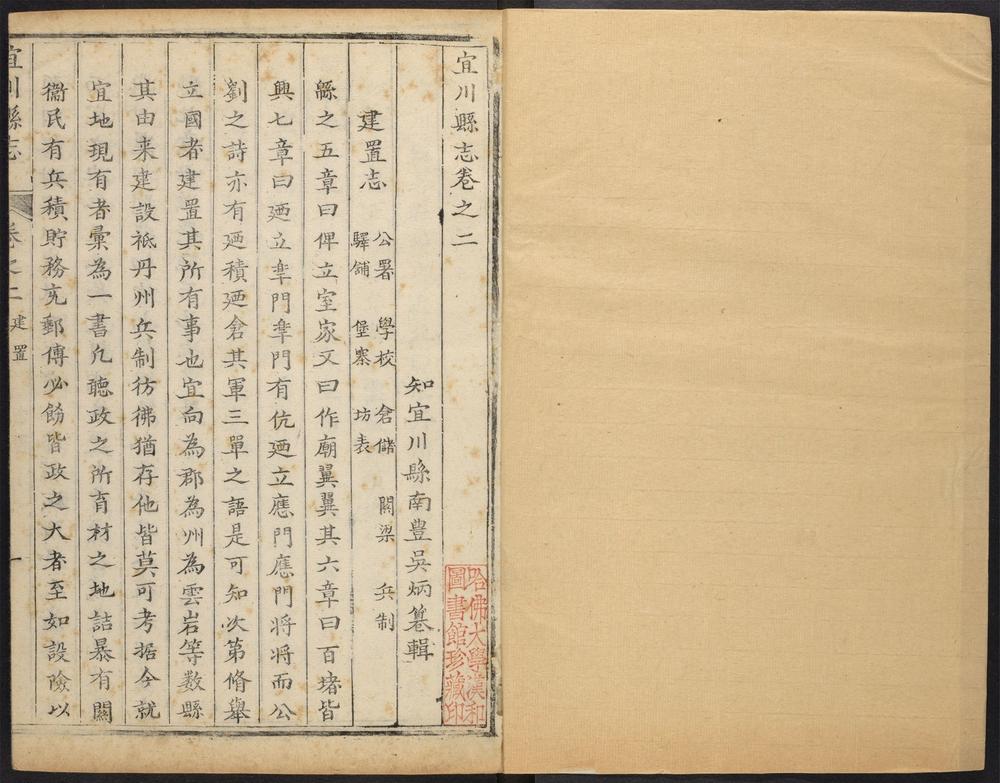 宜川縣志卷之二
知宜川縣南豊吳炳纂輯
建置志
公署 學校 倉儲 關梁 兵制
驛舖 堡寨 坊表
緜之五章曰俾立室家又曰作廟翼翼其六章曰百堵皆
興七章曰廼立臯門臯門有伉廼立應門應門将将而公
劉之詩亦有廼積廼倉其軍三單之語是可知次第脩舉
立國者建置其所有事也宜向為郡為州為雲岩等數縣
其由来建設祗丹州兵制彷彿猶存他皆莫可考据今就
宜地現有者彙為一書凢聴政之所育材之地詰暴有關
衞民有兵積貯務充郵傳必飭皆政之大者至如設險以
宜川縣志
卷之二
建置
一
哈佛大學漢和
圖書館珍藏印